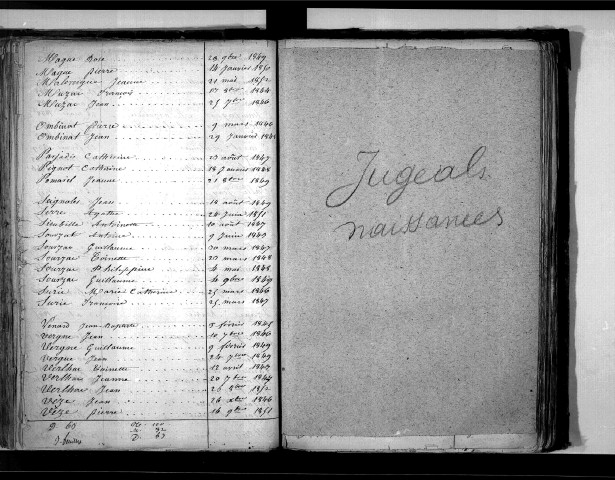 Magne Rose 28 9bre 1849
Magne Pierre 14 janvier 1850
Malevigne Jeanne 21 mai 1852
Muzac François 17 8bre 1844
Muzac Jean 25 7bre 1846
Ombinat Pierre 9 mars 1846
Ombinat Jean 29 janvier 1848
Catherine 10 août 1847
Catherine 18 janvier 1848
Pomarel Jeanne 21 8bre 1849
Seignolles Jean 18 août 1849
Serre Agathe 24 juin 1851
Antoinette 10 août 1847
Sourzat Antoine 9 juin 1849
Sourzac Guillaume 20 mars 1847
Sourzac Toinette 20 mars 1848
Sourzac Philippine 4 mai 1848
Sourzac Guillaume 4 9bre 1849
Surie Marie Catherine 25 mars 1846
Surie Françoise 25 mars 1847
Venard Jean-Baptiste 5 février 1845
Vergne Jean 10 7bre 1846
Vergne Guillaume 9 février 1849
Vergne Jean 24 7bre 1849
Verlhac Toinette 12 avril 1847
Verlhac Jeanne 20 7bre 1847
Verlhac Jean 26 8bre 1852
Vèze Jean 26 xbre 1846
Vèze Pierre 16 9bre 1851
9. 60
100
92
D. 63
Jugeals
naissances